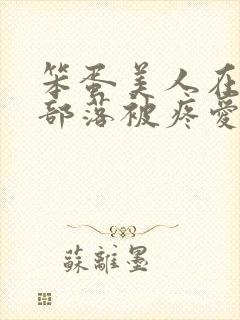 笨蛋美人在
部落被疼愛
蘇離墨